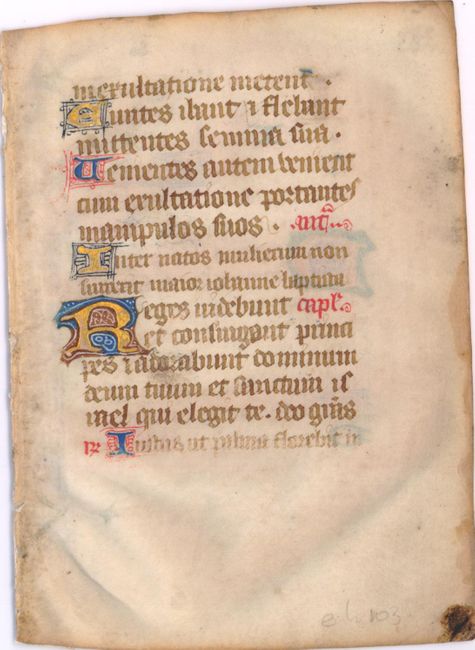 in exultatione metent .
Euntes ibant ⁊ flebant
mittentes semina sua .
Uementes autem venient
cum exultatione portantes
manipulos suos . ant̃
Inter natos mulierum non
surrexit maior iohanne baptista
Reges videbunt capl̃
et consurgent princi
pes ⁊ adorabunt dominum
deum tuum et sanctum is
rael qui elegit te . deo grãs
℟ Iustus ut palma florebit in